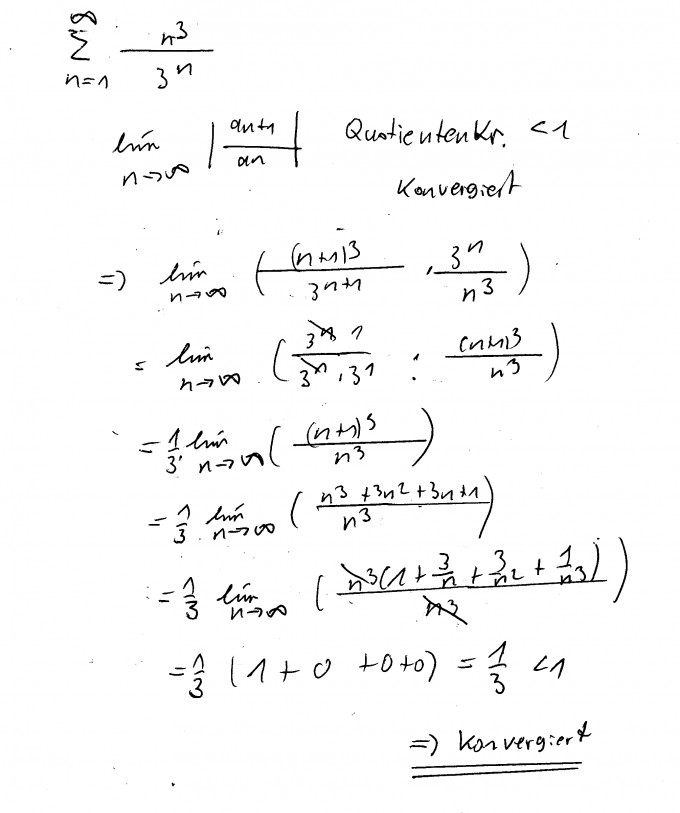 ∑_{n=1}^{∞} n³ / 3ⁿ
lim_{n→∞} |an+1 / an| Quotientenkr. < 1
Konvergiert
=) lim_{n→∞} ( (n+1)³ / 3ⁿ⁺¹ · 3ⁿ / n³ )
= lim_{n→∞} ( 3ⁿ 1 / 3ⁿ · 3¹ : (n+1)³ / n³ )
= 1/3 · lim_{n→∞} ( (n+1)³ / n³ )
= 1/3 lim_{n→∞} ( n³ + 3n² + 3n + 1 / n³ )
= 1/3 lim_{n→∞} ( n³(1 + 3/n + 3/n² + 1/n³) / n³ )
= 1/3 (1 + 0 + 0 + 0) = 1/3 < 1
=) Konvergiert